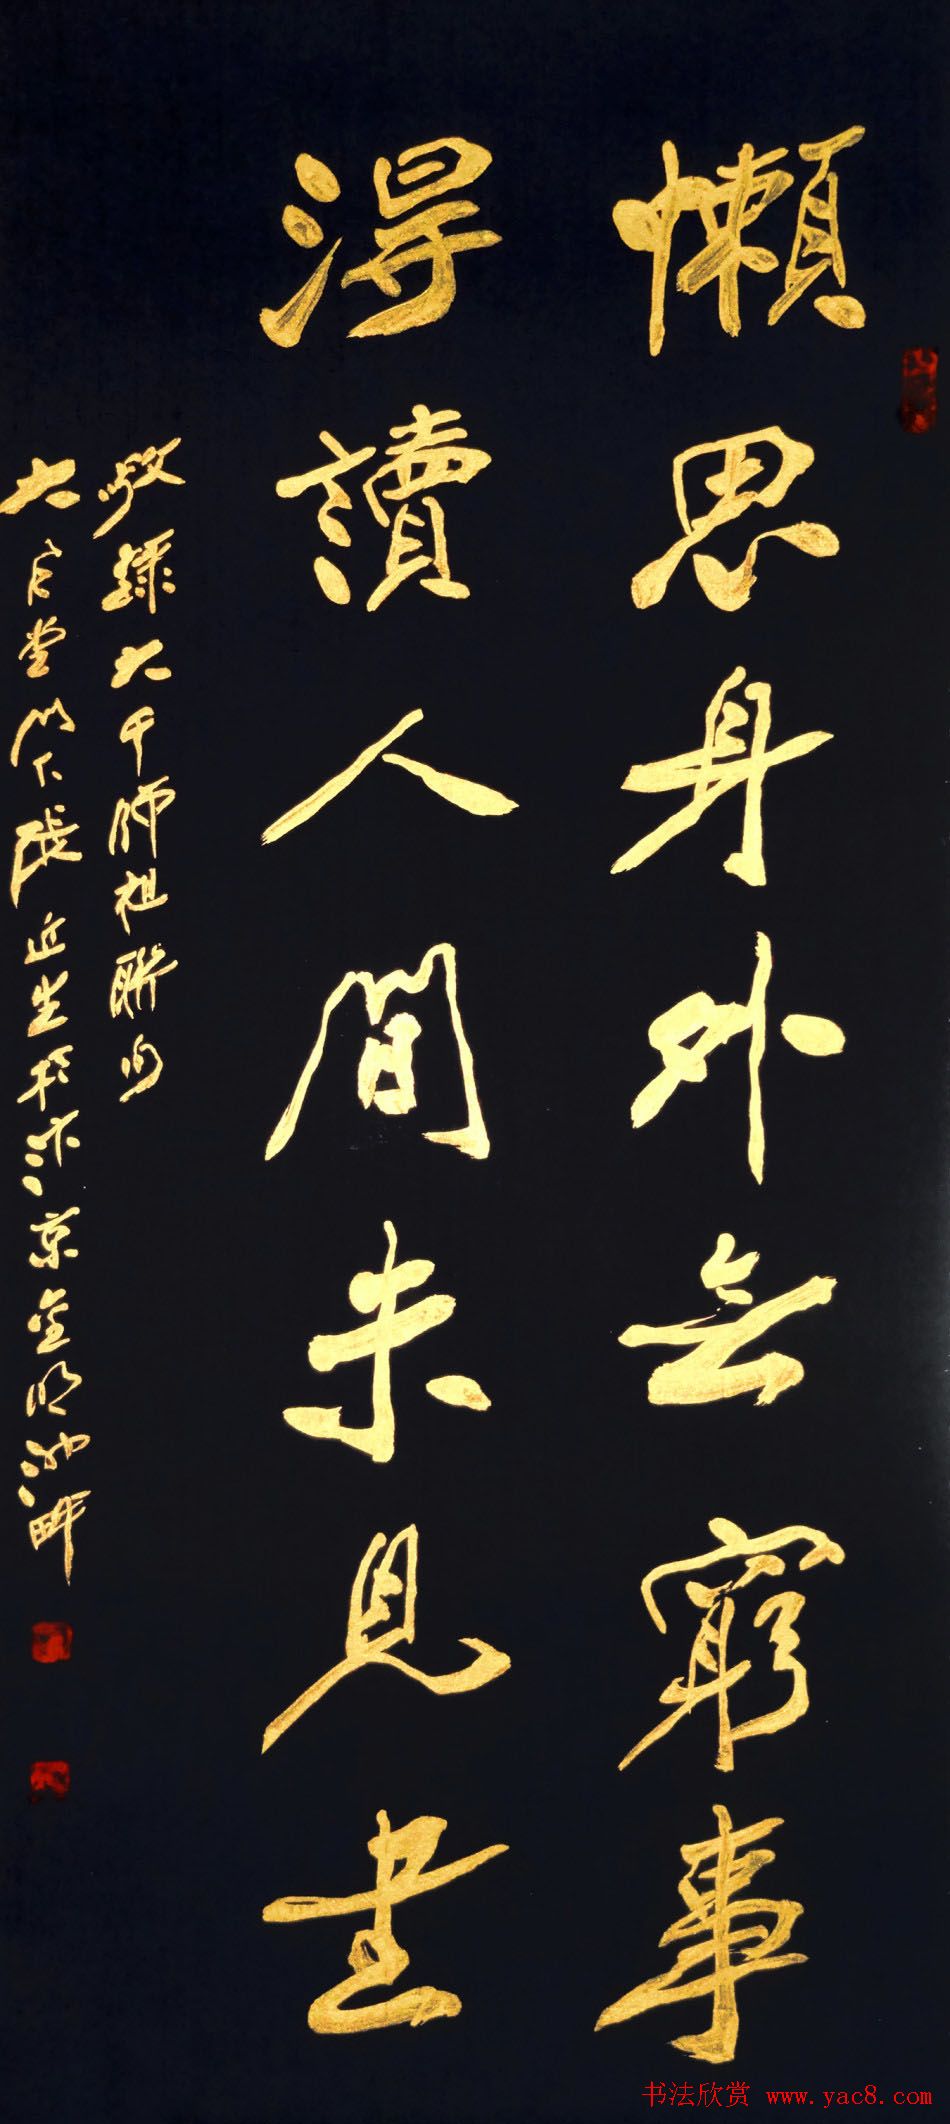 懶思身外無窮事
得讀人間未見書
敬錄大千師祖聯句
大風堂門下張近生於汴京金明池畔
书法欣赏 www.yac8.com